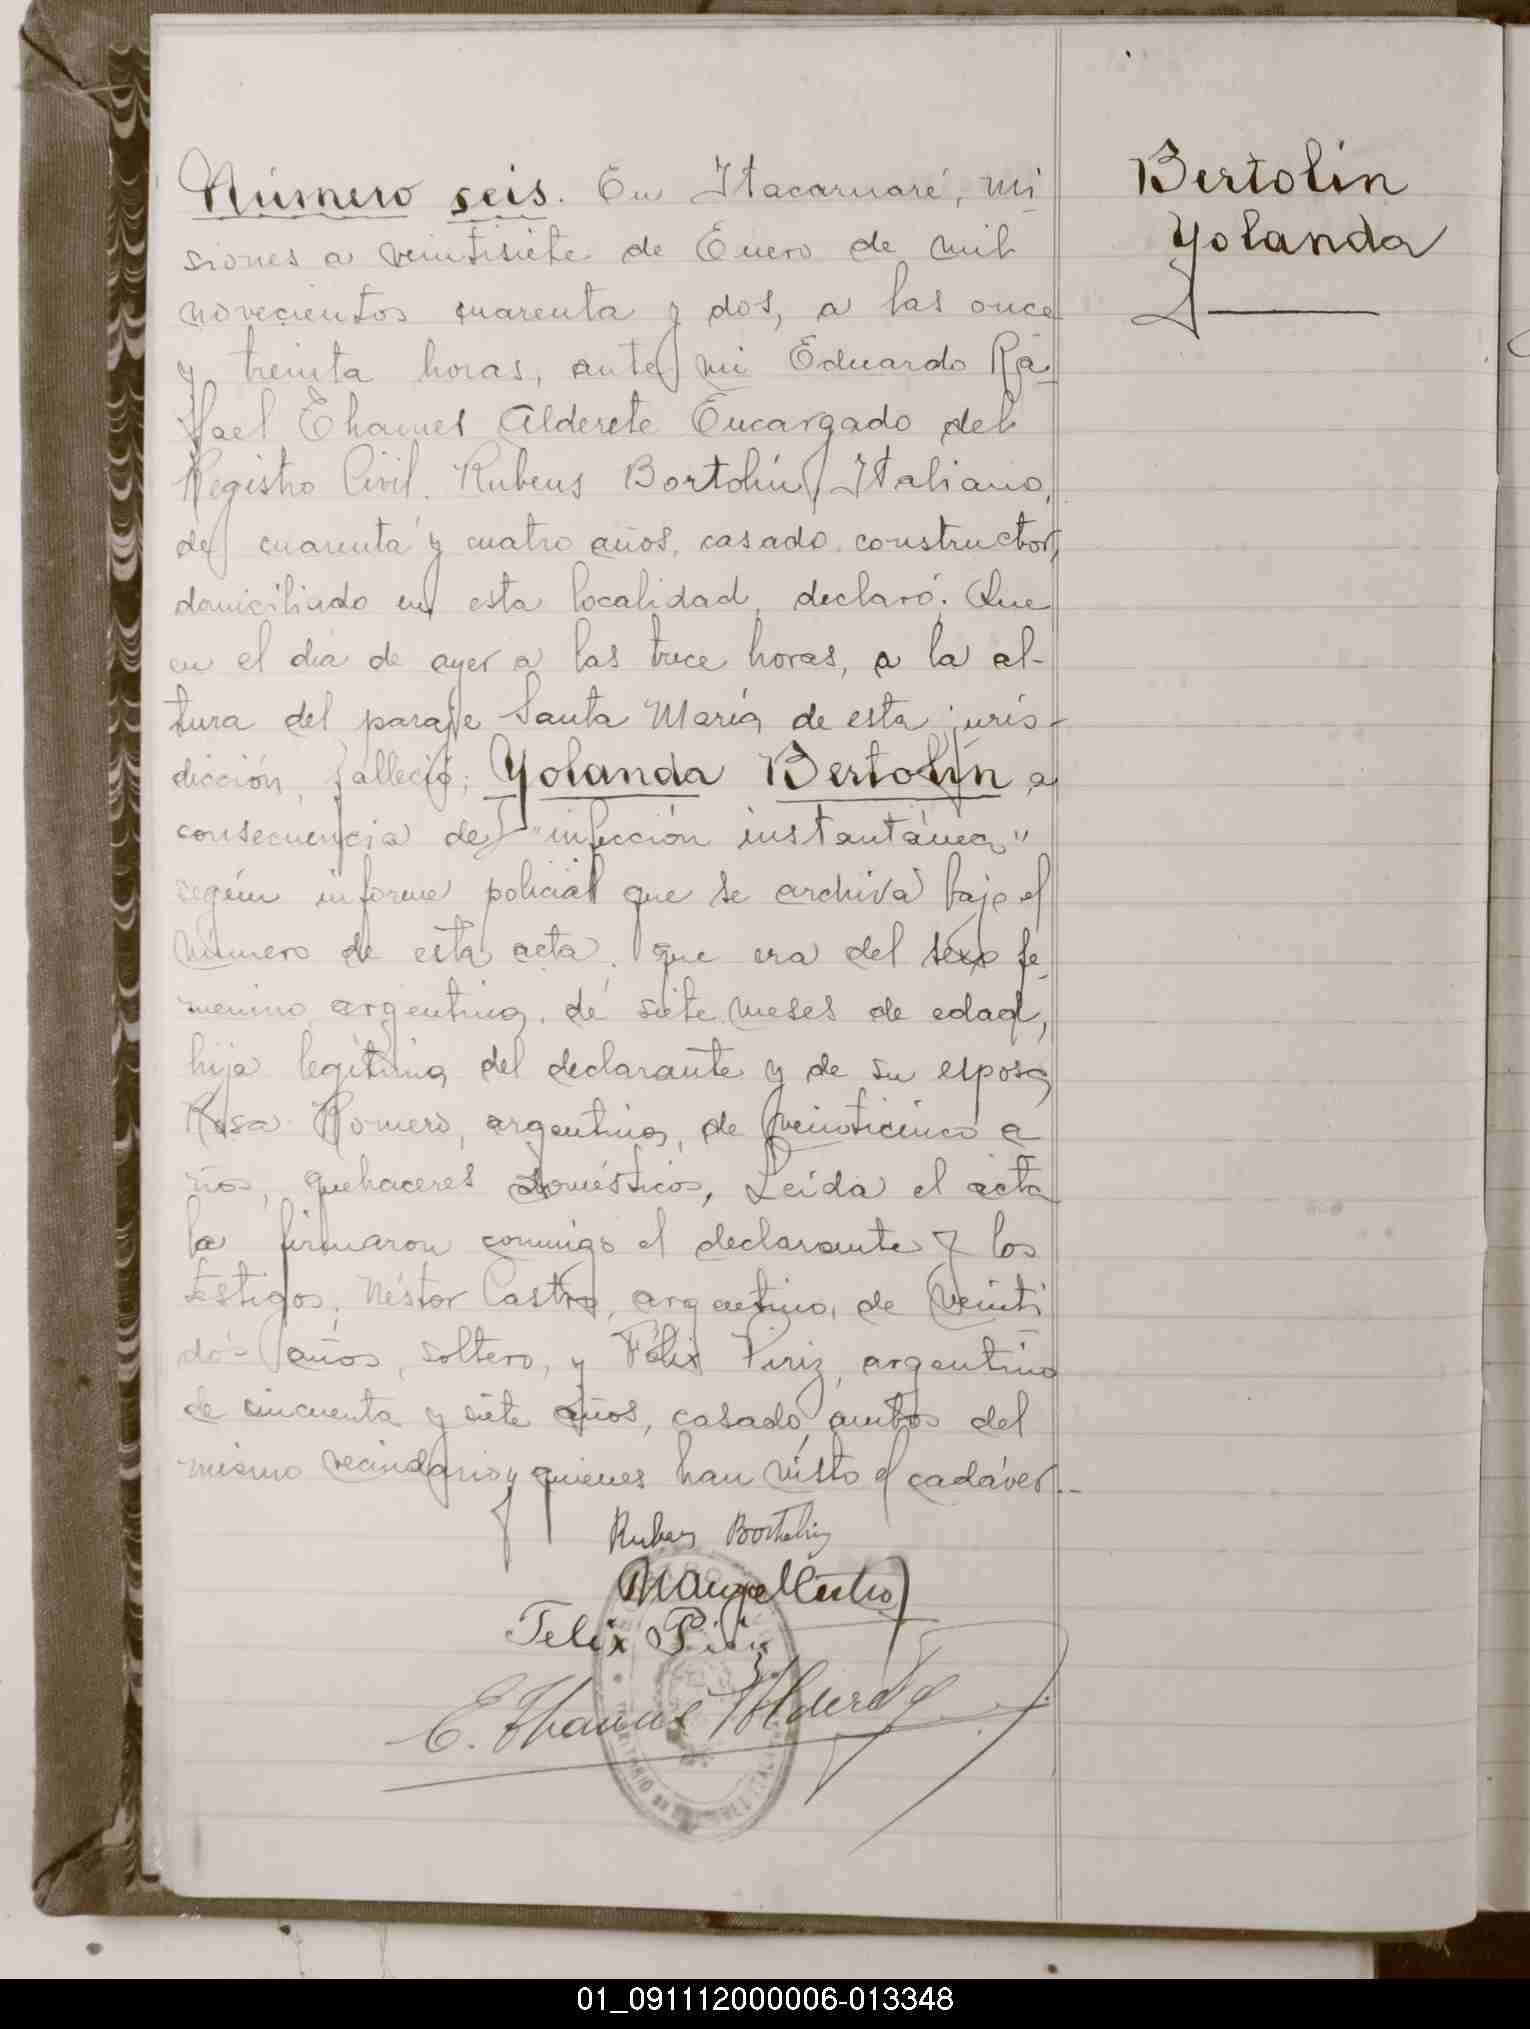 Bertolin
Yolanda
Número seis. En Itacaruaré, Mi
siones a veintisiete de Enero de mil
novecientos cuarenta y dos, a las once
y treinta horas, ante mi Eduardo Ra-
fael Ehames Alderete Encargado del
Registro Civil. Rubens Bortolin, Italiano,
de cuarenta y cuatro años, casado, constructor,
domiciliado en esta localidad, declaró: Que
en el día de ayer a las trece horas, a la al-
tura del paraje Santa María de esta juris-
dicción, falleció; Yolanda Bertolin, a
consecuencia de "infección instantánea"
según informe policial que se archiva bajo el
número de esta acta; que era del sexo fe-
menino, argentina, de siete meses de edad,
hija legítima del declarante y de su esposa
Rosa Romero, argentina, de veinticinco a
ños, quehaceres domésticos, Leida el acta
la firmaron conmigo el declarante y los
testigos, Néstor Castro, argentino, de veinti
dós años, soltero, y Félix Piriz, argentino
de cincuenta y siete años, casado, ambos del
mismo vecindario y quienes han visto el cadáver..
Rubens Bortolin
Castro
Felix Piriz
E. Ehames Alderete
TERRITORIO DE
01_091112000006-013348